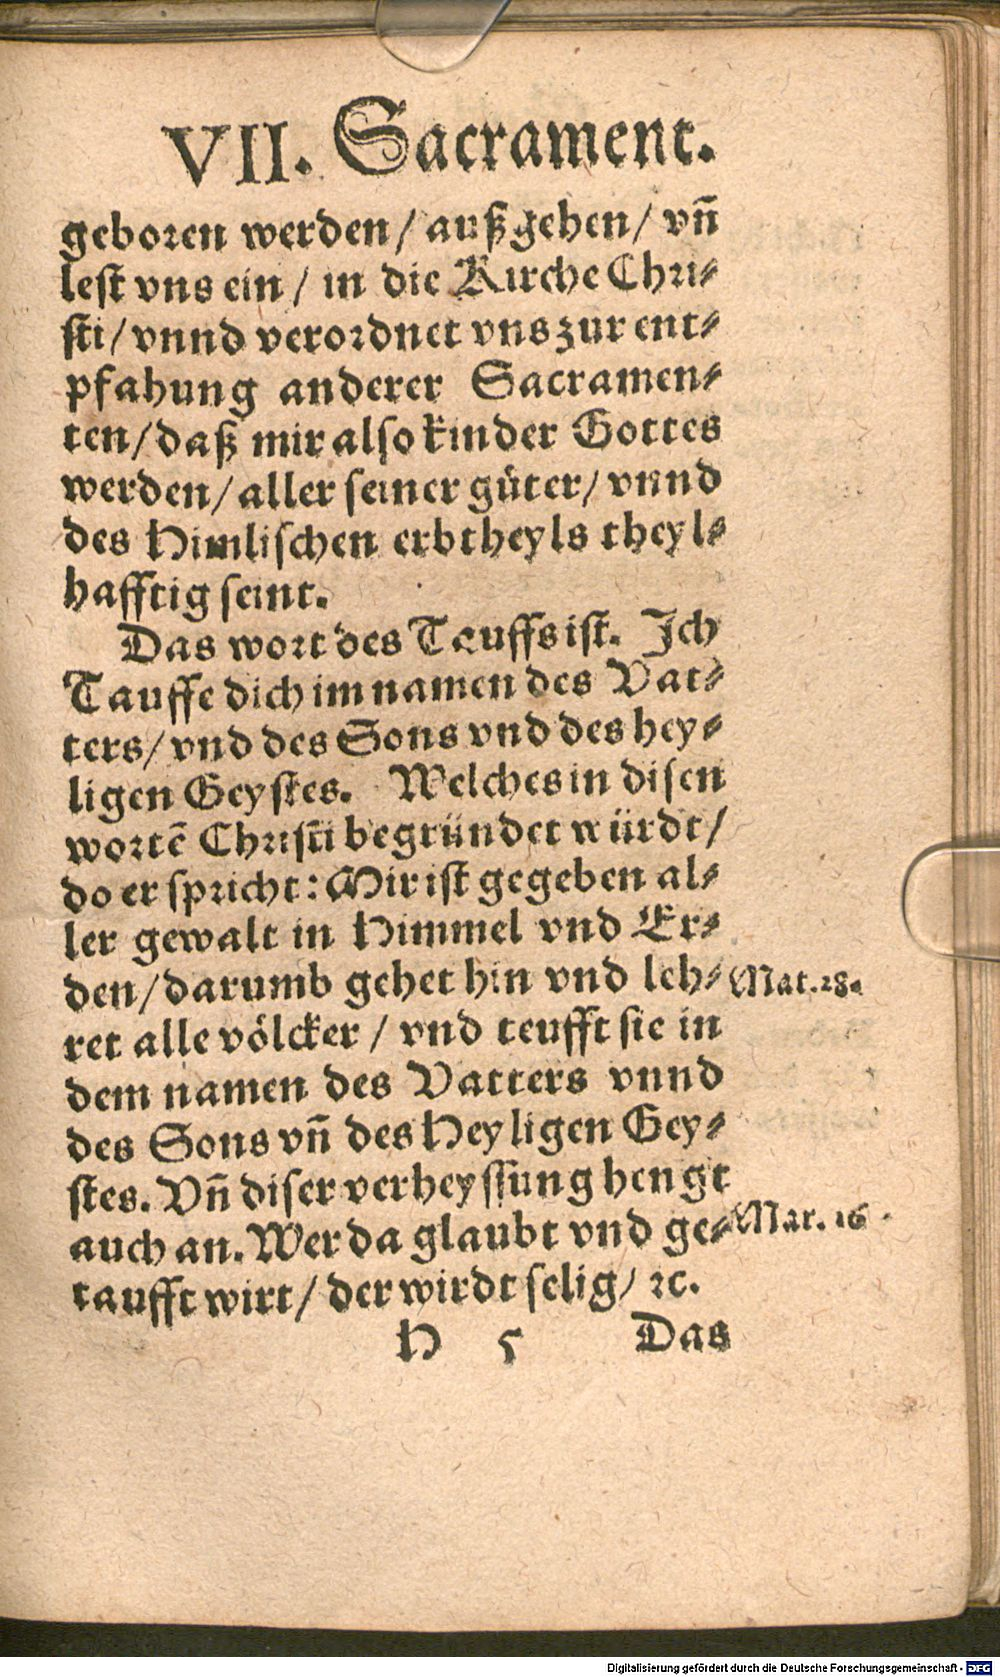 VII. Sacrament.
geboren werden/ außgehen/ vñ
lest vns ein/ in die Kirche Chri⸗
sti/ vnnd verordnet vns zur ent⸗
pfahung anderer Sacramen⸗
ten/ daß mir also kinder Gottes
werden/ aller seiner güter/ vnnd
des Himlischen erbtheyls theyl⸗
hafftig seint.
Das wort des Tauffs ist. Ich
Tauffe dich im namen des Vat⸗
ters/ vnd des Sons vnd des hey⸗
ligen Geystes. Welches in disen
wortē Christi begründet würdt/
do er spricht: Mir ist gegeben al⸗
ler gewalt in Himmel vnd Er⸗
den/ darumb gehet hin vnd leh⸗ Mat. 28.
ret alle völcker/ vnd teufft sie in
dem namen des Vatters vnnd
des Sons vñ des Heyligen Gey⸗
stes. Vñ diser verheyssung hengt
auch an. Wer da glaubt vnd ge⸗ Mar. 16.
taufft wirt/ der wirdt selig/ ꝛc.
H 5 Das
Digitalisierung gefördert durch die Deutsche Forschungsgemeinschaft - DFG